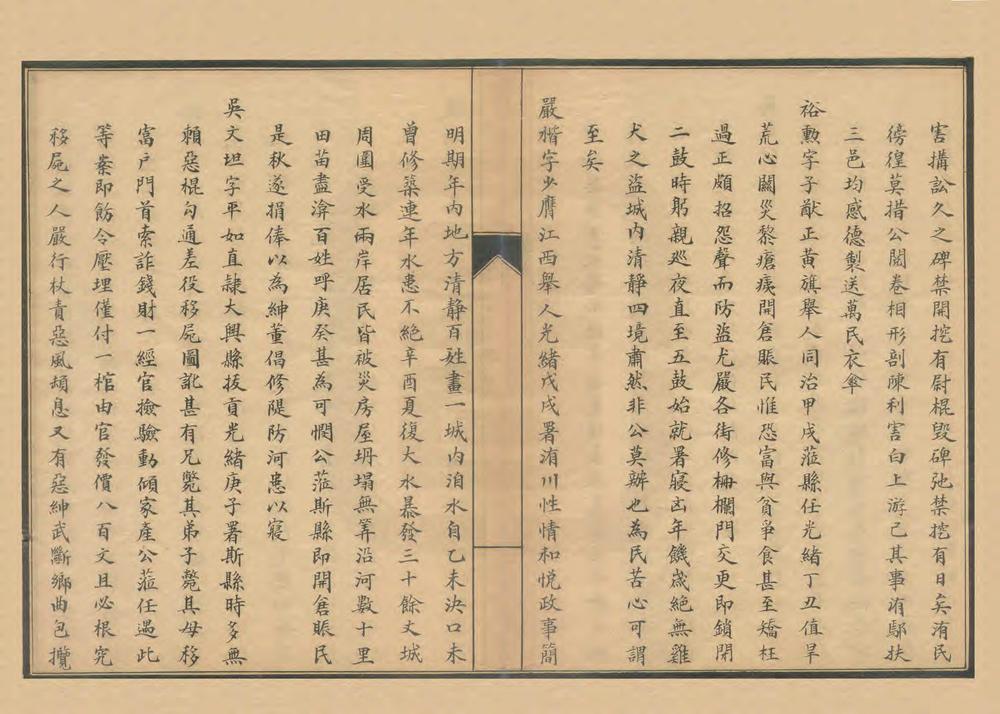 害搆訟久之碑禁開挖有尉棍毀碑弛禁挖有日矣洧民
徬徨莫措公閱卷相形剖陳利害白上游己其事洧鄢扶
三邑均感德製送萬民衣傘
裕勲字子猷正黃旗舉人同治甲戌蒞縣任光緒丁丑值旱
荒心關災黎瘡痍開倉賑民惟恐富與貧爭食甚至矯枉
過正頗招怨聲而防盜尤嚴各街修柵欄門交更即鎖閉
二鼓時躬親巡夜直至五鼓始就署寢凶年饑歲絕無雞
犬之盜城內清靜四境肅然非公莫辦也為民苦心可謂
至矣
嚴楷字少膺江西舉人光緒戊戌署洧川性情和悅政事簡
明期年內地方清靜百姓畫一城內洎水自乙未決口未
曾修築連年水患不絕辛酉夏復大水暴發三十餘丈城
周圍受水兩岸居民皆被災房屋坍塌無筭沿河數十里
田苗盡渰百姓呼庚癸甚為可憫公蒞斯縣即開倉賑民
是秋遂捐俸以為紳董倡修隄防河患以寢
吳文坦字平如直隸大興縣拔貢光緒庚子署斯縣時多無
賴惡棍勾通差役移屍圖訛甚有兄斃其弟子斃其母移
富戶門首索詐錢財一經官撿驗動傾家產公蒞任遇此
等案即飭令壓埋僅付一棺由官發價八百文且必根究
移屍之人嚴行杖責惡風頓息又有惡紳武斷鄉曲包攬